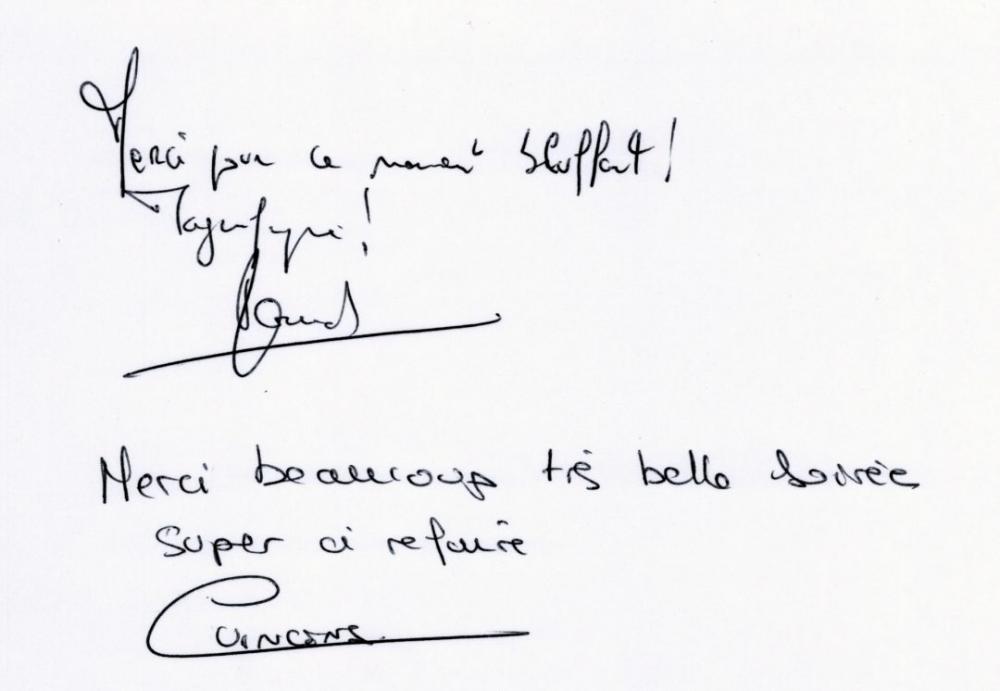 Merci pour ce moment bluffant !
Magnifique !
Merci beaucoup très belle soirée
Super a refaire